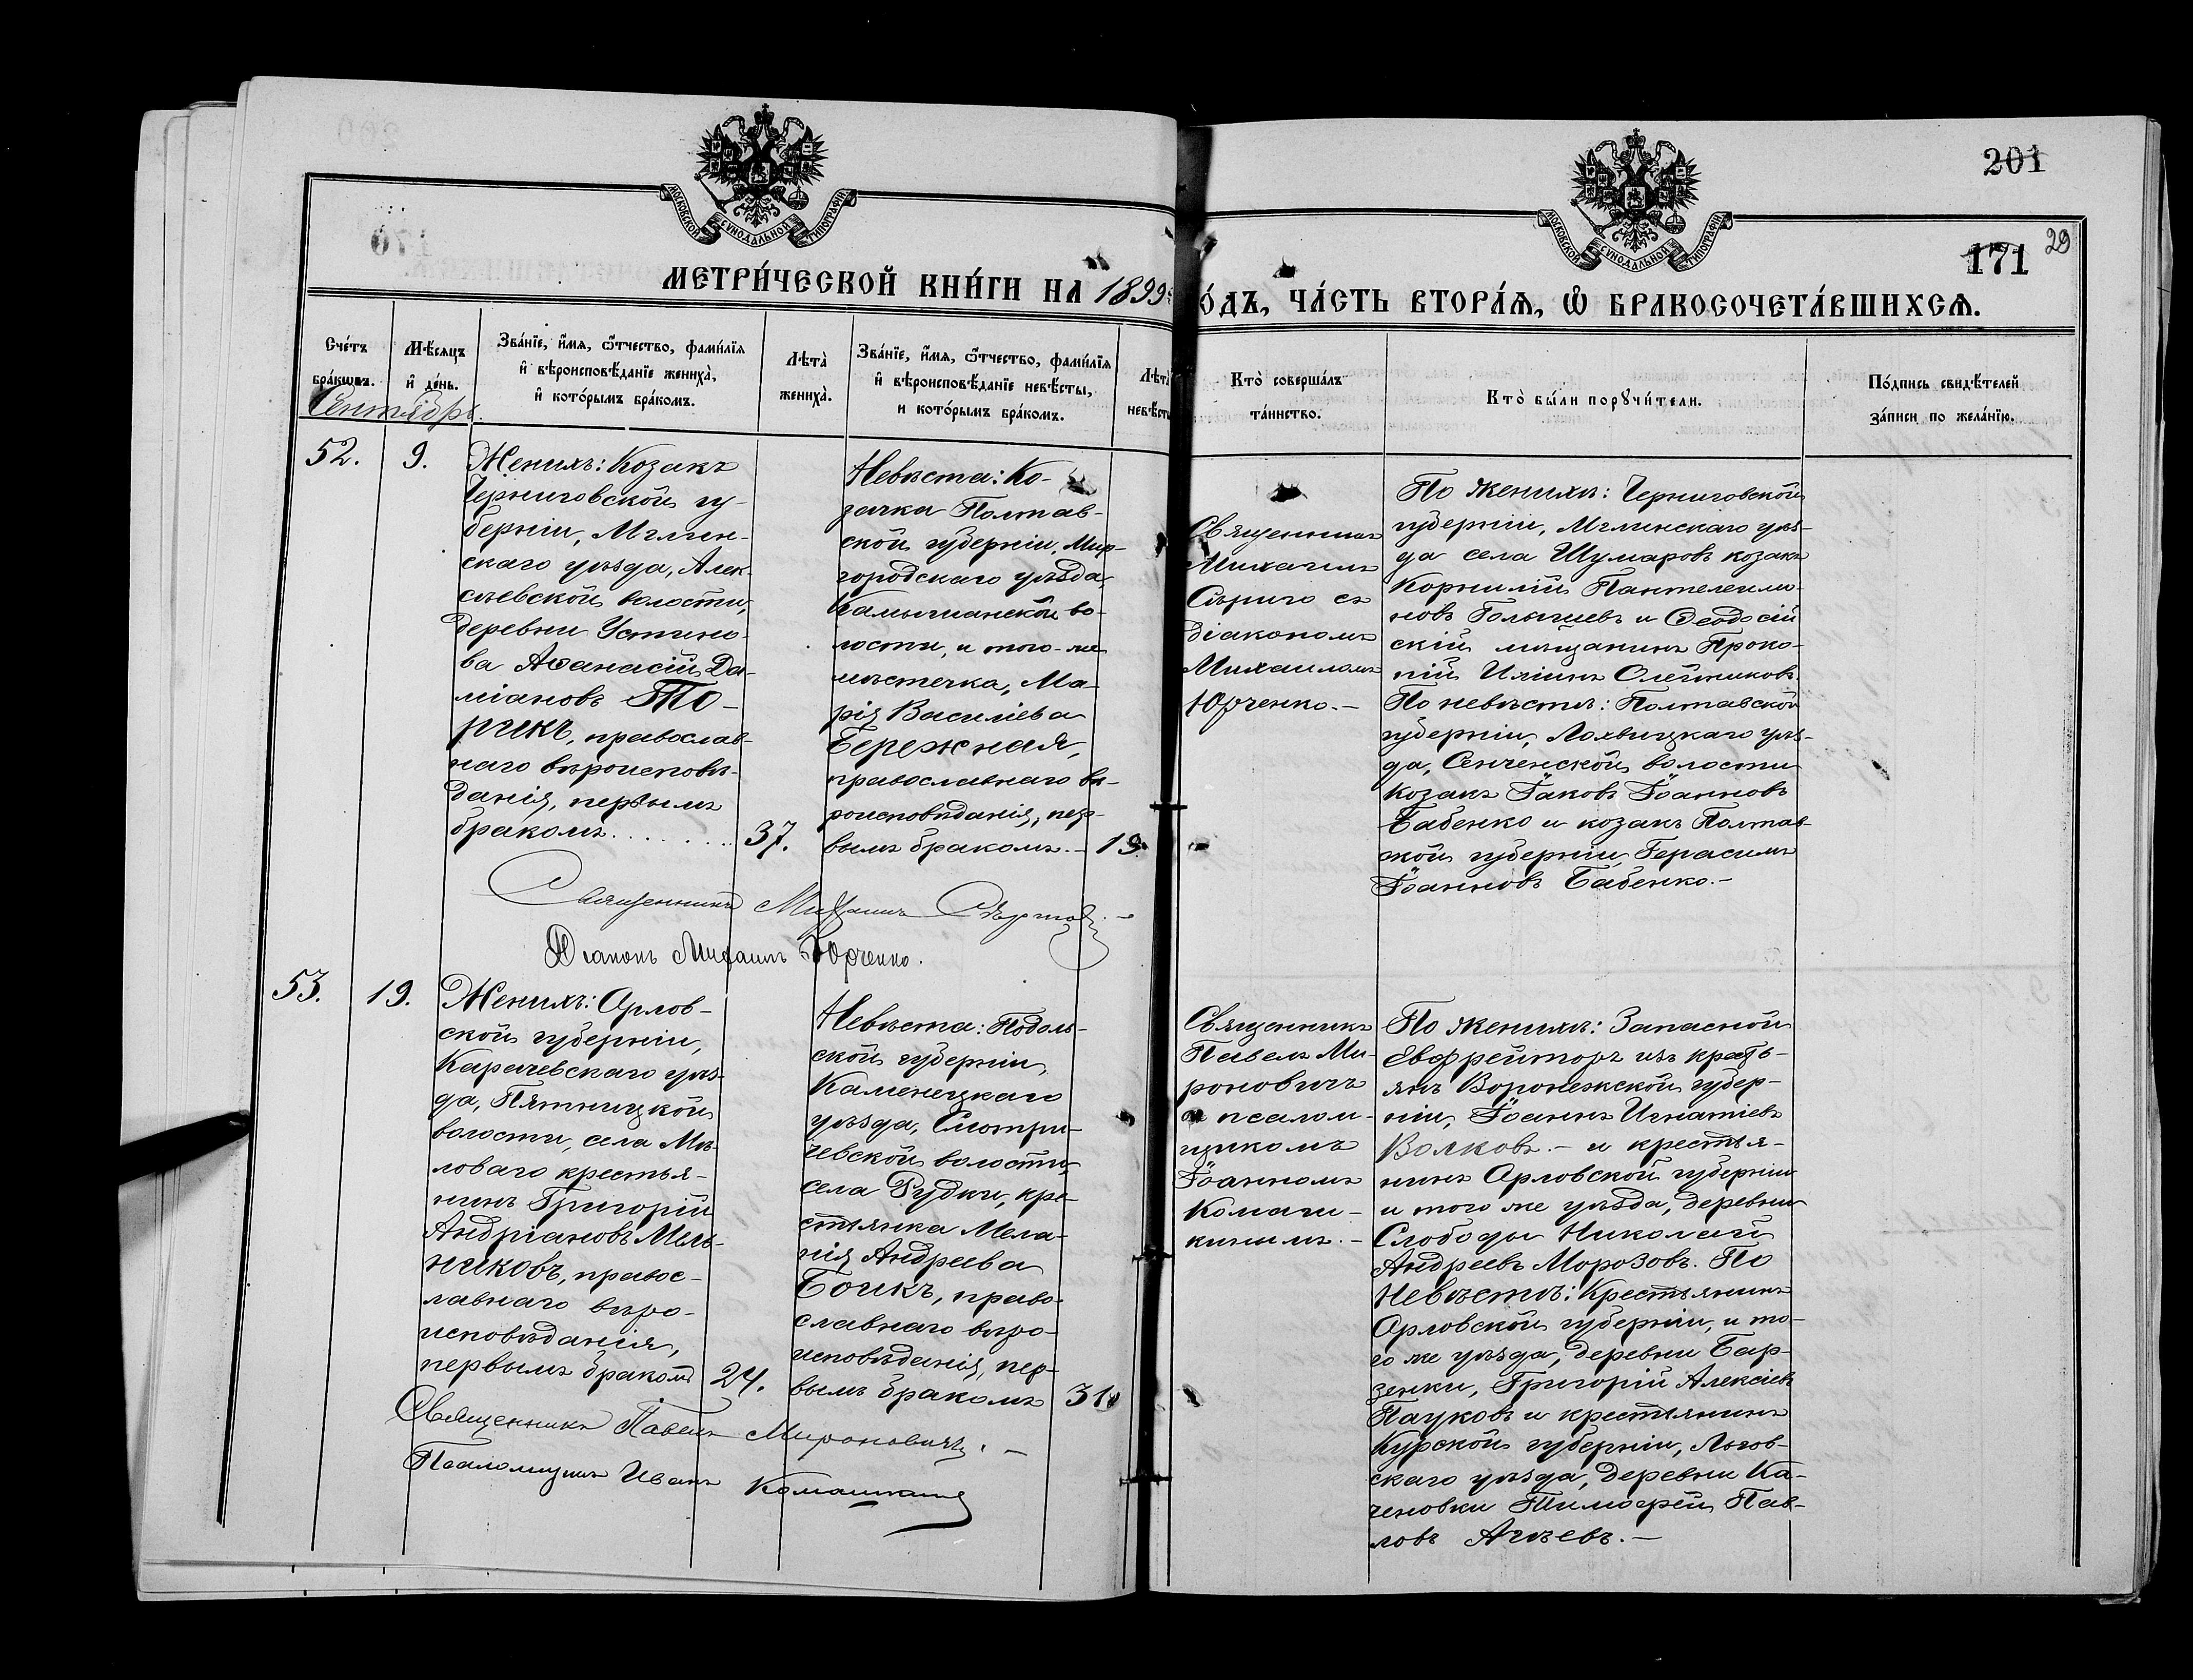 201
171
29
МОСКОВСКОЙ СѴНОДАЛЬНОЙ ТИПОГРАФІИ
МОСКОВСКОЙ СѴНОДАЛЬНОЙ ТИПОГРАФІИ
МЕТРИ́ЧЕСКОЙ КНИ́ГИ НА 1899
О́ДЪ, ЧА́СТЬ ВТОРА́Я, Ѿ БРАКОСОЧЕТА́ВШИХСЯ.
Сче́тъ
бра́кѡвъ.
Мѣ́сяцъ
и де́нь.
Зва́нїе, и́мя, ѻ́тчество, фами́лїя
и вѣроисповѣ́данїе жениха̀,
и кото́рымъ бра́комъ.
Лѣта̀
жениха̀.
Зва́нїе, и́мя, ѻ́тчество, фами́лїя
и вѣроисповѣ́данїе невѣ́сты,
и кото́рымъ бра́комъ.
Лѣта
невѣсты
Кто̀ соверша́лъ
та́инство.
Кто̀ бы́ли порꙋчи́тели.
По́дпись свидѣ́телей
за́писи по жела́нїю.
Сентябрь.
52.
9.
Женихъ: Козакъ
Черниговской гу-
берніи, Мглин-
скаго уѣзда, Алек-
сѣевской волости,
деревни Устино-
ва Аѳанасій Да-
міановъ
православ-
наго вѣроисповѣ-
данія, первымъ
бракомъ.......
37.
Невѣста: Ко-
зачка Полтав-
ской губерніи, Мир-
городскаго уѣзда
Камышанской во-
лости, и того-же
мѣстечка, Ма-
рія Василіева
Бережная,
православнаго вѣ-
роисповѣданія, пер-
вымъ бракомъ.-
19
Священникъ
Михаилъ
Сѣриго съ
діакономъ
Михаиломъ
Юрченко.-
По женихѣ: Черниговской
губерніи, Мглинскаго уѣз-
да села Шумаровъ козакъ
Корнилій Пантелеимо-
новъ Голышевъ и Ѳеодосій
скій мѣщанинъ Проко-
пій Иліинъ Олейниковъ.
По невѣстѣ: Полтавской
губерніи, Лохвицкаго уѣз-
да, Сенченской волости
козакъ Іаковъ Іоанновъ
Бабенко и козакъ Полтав-
ской губерніи Герасимъ
Іоанновъ Бабенко.-
Священникъ Михаилъ
Діаконъ Михаилъ Юрченко.
53.
19.
Женихъ: Орлов-
ской губерніи,
Карачевскаго уѣз-
да, Пятницкой
волости, села Мѣ-
ловаго крестья-
нинъ Григорій
Андріановъ Мель-
никовъ, правос-
лавнаго вѣро-
исповѣданія,
первымъ бракомъ
24.
Невѣста: Подоль-
ской губерніи,
Каменецкаго
уѣзда, Смотри-
чевской волости,
села Рудки, кре-
стьянка Мела-
нія Андреева
Боикъ, право-
славнаго вѣро-
исповѣданія, пер-
вымъ бракомъ
31
Священникъ
Павелъ Ми-
роновичъ
съ псалом-
щикомъ
Іоанномъ
Комаги-
кинымъ.-
По женихѣ: Запасной
Евфрейторъ изъ кресть-
янъ Воронежской губер-
ніи, Іоаннъ Игнатіевъ
Волковъ.- и крестья-
нинъ Орловской губерніи
и того же уѣзда, деревни
Слободы Николай
Андреевъ Морозовъ. По
Невѣстѣ: Крестьянинъ
Орловской губерніи, и то-
го же уѣзда, деревни Бар-
зенки, Григорій Алексіевъ
Пауковъ и крестьянинъ
Курской губерніи, Льгов-
скаго уѣзда, деревни Ка-
ченовки Тимофей Пав-
ловъ Агѣевъ.-
Священникъ Павелъ Мироновичъ.-
Псаломщикъ Иванъ